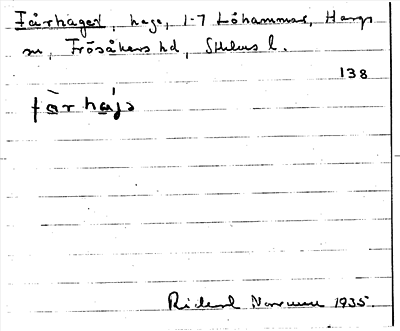 Fårhagen, hage, 1-7 Löhammar, Hargs
sn, Frösåkers hd, Sthlms l.
138
fårhajs
Rickard Norman 1935